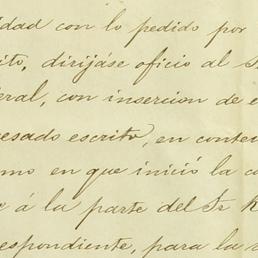 idad con lo pedido por
ito, dirijáse oficio al S
eral, con insercion de e
esado escrito, en conte
mo en que inició la ca
e á la parte del Sr R
espondiente, para la